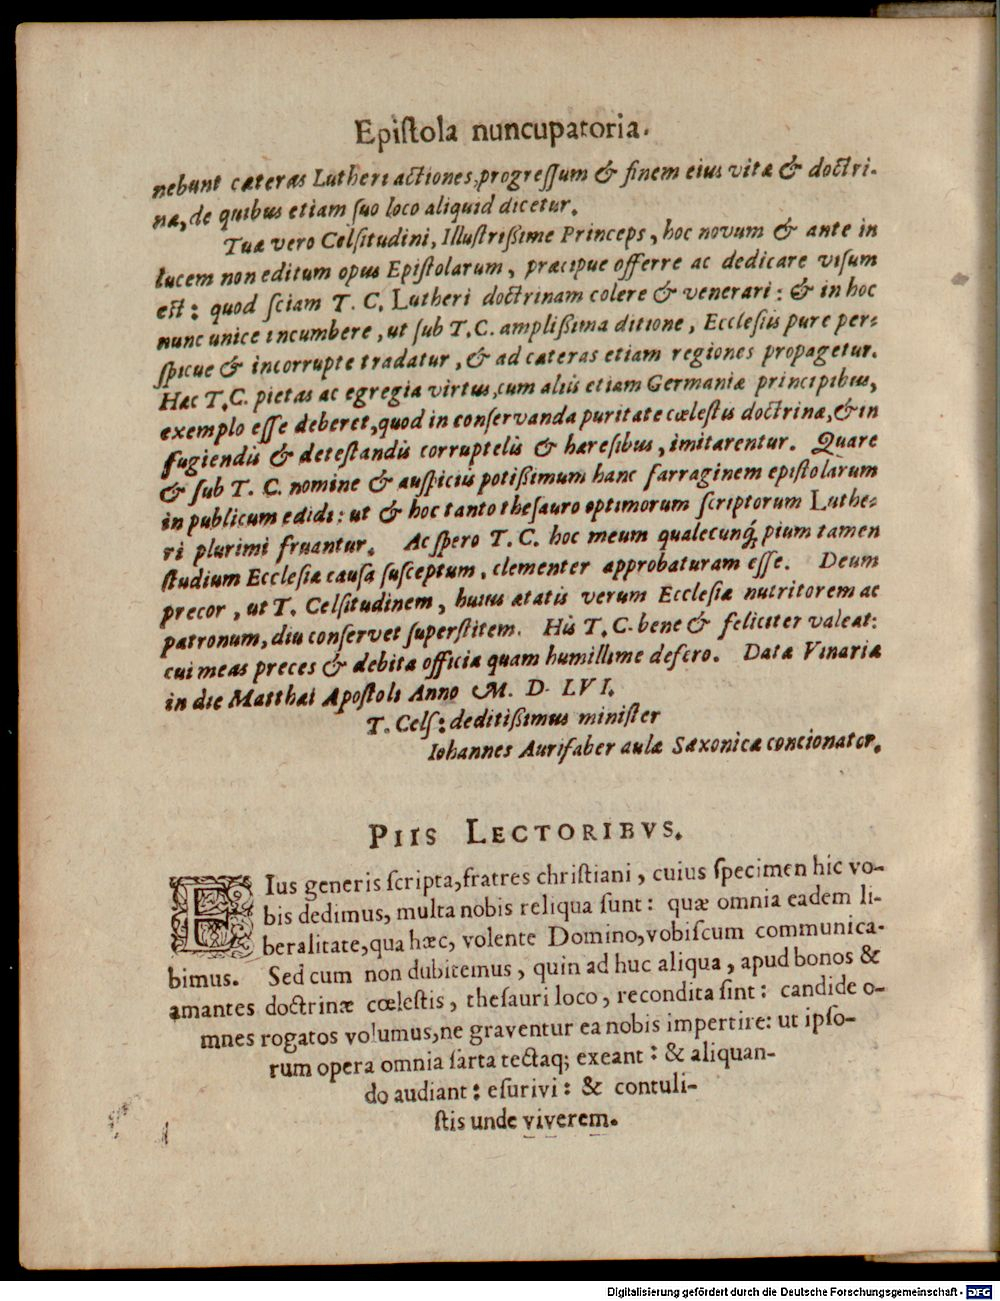 Epiſtola nuncupatoria.
nebunt cæteras Lutheri actiones, progreſſum & finem eius vitæ & doctri-
næ, de quibus etiam ſuo loco aliquid dicetur.
Tuæ vero Celſitudini, Illuſtrißime Princeps, hoc novum & ante in
lucem non editum opus Epiſtolarum, præcipue offerre ac dedicare viſum
est: quod ſciam T. C. Lutheri doctrinam colere & venerari: & in hoc
nunc unice incumbere, ut ſub T.C. amplißima ditione, Ecclesiis pure per-
ſpicue & incorrupte tradatur, & ad cæteras etiam regiones propagetur.
Hæc T.C. pietas ac egregia virtus, cum aliis etiam Germaniæ principibus,
exemplo eſſe deberet, quod in conſervanda puritate cœlestis doctrinæ, & in
fugiendis & deteſtandis corruptelis & hæreſibus, imitarentur. Quare
& ſub T. C. nomine & auſpiciis potißimum hanc farraginem epiſtolarum
in publicum edidi: ut & hoc tanto theſauro optimorum ſcriptorum Luthe-
ri plurimi fruantur. Ac ſpero T. C. hoc meum qualecunq; pium tamen
ſtudium Ecclesiæ cauſa ſuſceptum, clementer approbaturam eſſe. Deum
precor, ut T. Celſitudinem, huius ætatis verum Ecclesiæ nutritorem ac
patronum, diu conſervet ſuperſtitem. His T. C. bene & feliciter valeat:
cui meas preces & debita officia quam humillime defero. Datæ Vinariæ
in die Matthæi Apoſtoli Anno M. D. LVI.
T. Celſ: deditißimus miniſter
Iohannes Aurifaber aulæ Saxonicæ concionator.
PIIS LECTORIBVS.
EIus generis ſcripta, fratres chriſtiani, cuius ſpecimen hic vo-
bis dedimus, multa nobis reliqua ſunt: quæ omnia eadem li-
beralitate, qua hæc, volente Domino, vobiſcum communica-
bimus. Sed cum non dubitemus, quin ad huc aliqua, apud bonos &
amantes doctrinæ cœleſtis, theſauri loco, recondita ſint: candide o-
mnes rogatos volumus, ne graventur ea nobis impertire: ut ipſo-
rum opera omnia ſarta tectaq; exeant: & aliquan-
do audiant: eſurivi: & contuli-
ſtis unde viverem.
Digitalisierung gefördert durch die Deutsche Forschungsgemeinschaft - DFG